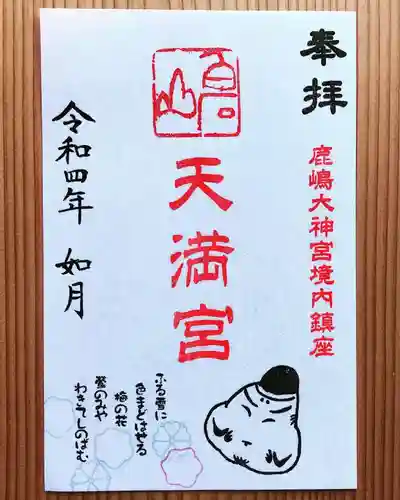 奉拝
鹿嶋大神宮境内鎮座
天満宮
令和四年 如月
ふる雪に
色まどはせる
梅の花
鶯のみや
わきてしのばむ